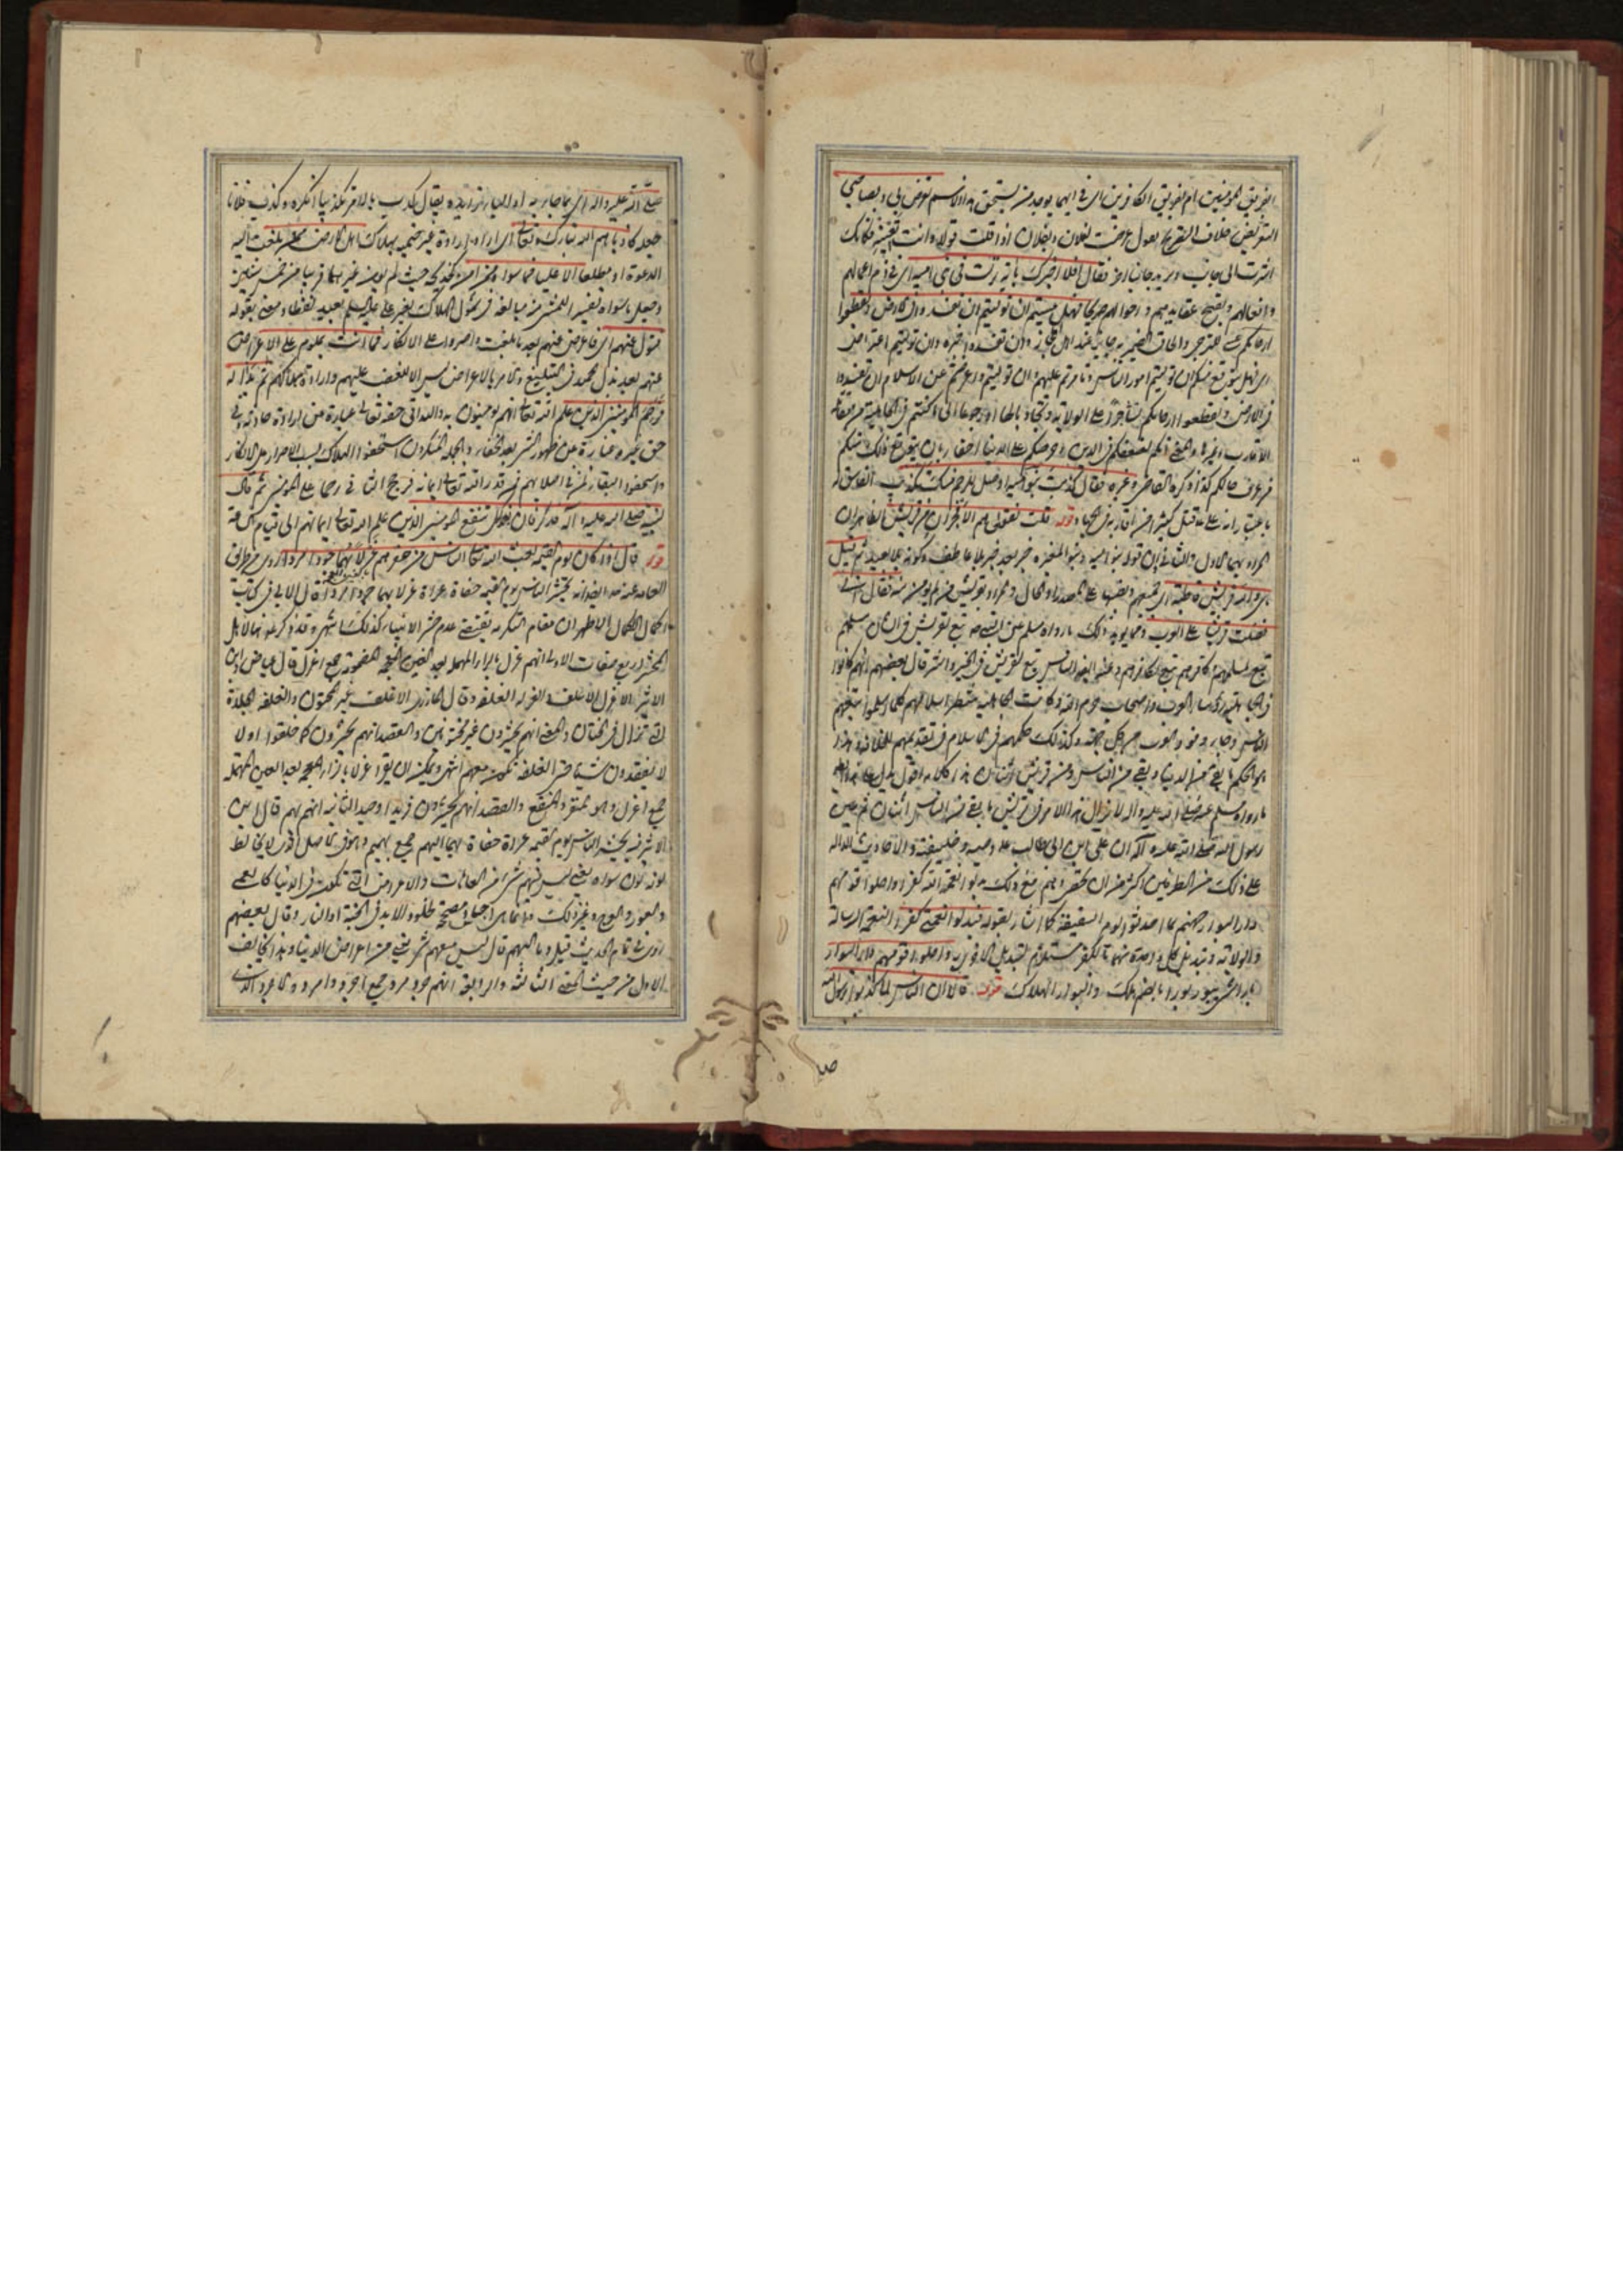 الفريق المؤمنين ام لفريق الكافرين اى فى ايهما يوجد من يستحق هذا الاسم تعرض بى وبصاحبى
التعريض خلاف التصريح يقول عرضت لفلان وبفلان اذا قلت قولا وانت تعنيه فكانك
اشرت الى جانب وتريد جانبا اخر فقال افلا اخبرك باية نزلت فى بنى امية اى فى ذم اعمالهم
وافعالهم وتقبيح عقايدهم واحوالهم صريحا فهل عسيتم ان توليتم ان تفسدوا فى الارض وتقطعوا
ارحامكم عسى للترجى والحاق الضمير به جايز عند اهل الحجاز وان تفسدوا خبره وان توليتم اعتراض
اى فهل يتوقع منكم ان توليتم امور الناس وتامرتم عليهم او ان توليتم واعرضتم عن الاسلام ان تفسدوا
فى الارض وتقطعوا ارحامكم تشاجرا على الولاية وتجاذبا لها او رجوعا الى ما كنتم فى الجاهلية من مقاتلة
الاقارب وغيرها والمعنى انكم لضعفكم فى الدين وحرصكم على الدنيا احقاء بان يتوقع ذلك منكم
من عرف حالكم كذا ذكره القاضى وغيره فقال كذبت بنو امية اوصل للرحم منك كذب الفاسق
باعتبار انه عليه السلم قتل كثيرا من اقاربه فى الجهاد قوله قلت نعم الى هم الافجران من قريش الظاهر ان
المراد بهما الاول والثانى لان قوله بنو امية وبنو المغيرة خبر بعد خبر بلا عاطف وكونه بدلا بعيد ثم قيل
هى والله قريش قاطبة اى جميعهم ونصبها على المصدر او الحال والمراد بقريش من لم يؤمن منه فقال انى
فضلت قريشا على العرب ومما يؤيد ذلك ما رواه مسلم عن النبى ص الناس تبع لقريش فى الشان مسلمهم
تبع لمسلمهم وكافرهم تبع لكافرهم وعنه ايضا الناس تبع لقريش فى الخير والشر قال بعضهم انهم كانوا
فى الجاهلية رؤساء العرب واصحاب حرم الله وكانت الجاهلية تنتظر اسلامهم فلما اسلموا تبعهم
الناس وجاءت وفود العرب من كل جهة وكذلك حكمهم فى الاسلام فى تقديمهم للخلافة وهذا
الحكم ما بقى من الدنيا وبقى من الناس ومن قريش اثنان هذا كلامه اقول يدل على هذا ايضا
ما رواه مسلم عنه صلى الله عليه واله لا يزال هذا الامر فى قريش ما بقى من الناس اثنان ثم بين
رسول الله صلى الله عليه واله ان على بن ابى طالب عليه السلم وصيه وخليفته والاحاديث الدالة
على ذلك من الطرفين اكثر من ان تحصى وهم مع ذلك بدلوا نعمة الله كفرا واحلوا قومهم
دار البوار جهنم بما احدثوا يوم السقيفة كما اشار بقوله فبدلوا نعمتى كفرا النعمة الرسالة
والولاية وتبديل كل واحدة منهما بالكفر مستلزم لتبديل الاخرى به واحلوا قومهم دار البوار
بار الشىء يبور بورا بالضم هلك والبوار الهلاك قوله قالا ان الناس لما كذبوا برسول الله
صلى
صلى الله عليه واله اى بما جاء به او الباء زايدة يقال كذب بالامر تكذيبا انكره وكذب فلانا
جعله كاذبا هم الله تبارك وتعالى اى اراد ارادة غير حتمية بهلاك اهل الارض ممن بلغت اليه
الدعوة او مطلقا الا عليا فما سواه ومن امن كخديجة حيث لم يؤمن غيرهما قريبا من خمس سنين
وجعل ما سواه تفسيرا للمستثنى منه مبالغة فى شمول الهلاك لغير على عليه السلم بعيد لفظا ومعنى بقوله
فتول عنهم اى فاعرض عنهم بعد ما بلغت واصروا على الانكار فما انت بملوم على الاعراض
عنهم بعد بذل جهدك فى التبليغ والامر بالاعراض ليس الا للغضب عليهم وارادة هلاكهم ثم بدا له
فرحم المؤمنين الذين علم الله تعالى انهم يؤمنون به والبداء فى حقه تعالى عبارة عن ارادة حادثة وفى
حق غيره عبارة عن ظهور الشىء بعد الخفاء وبالجملة المنكرون استحقوا الهلاك بسبب الاصرار على الانكار
واستحقوا البقاء لمن فى اصلابهم ممن قدر الله تعالى ايمانه فرجح الثانى رحما على المؤمنين ثم قال
لنبيه صلى الله عليه واله فذكر فان الذكرى تنفع المؤمنين الذين علم الله تعالى ايمانهم الى قيام الساعة
قوله قال اذا كان يوم القيمة بعث الله تعالى الناس من حفرهم غرلا بهما جردا مردا روى من طرق
العامة عنه ص ايضا انه يحشر الناس يوم القيمة حفاة عراة غرلا بهما جردا مردا قال الابى فى كتاب
اكمال الاكمال الاظهر ان مقام التكرمة يقتضى عدم حشر الانبياء كذلك اشهر وقد ذكر عنه ص لاهل
المحشر اربع صفات الاولى انهم غرل بالراء المهملة بعد الغين المعجمة المضمومة جمع اغرل قال عياض وابن
الاثير الاغرل الاقلف والغرلة القلفة وقال المازرى الاغلف غير المختون والقلفة الجلدة
التى تزال فى الختان والمعنى انهم يحشرون غير مختونين والقصد انهم يحشرون كما خلقوا اولا
لا يفقدون شيئا حتى القلفة تكون معهم انتهى ويمكن ان يقرا عزلا بالزاء المعجمة بعد العين المهملة
جمع اعزل وهو المنفرد المنقطع والقصد انهم يحشرون فريدا وحيدا الثانية انهم بهم قال ابن
الاثير فيه يحشر الناس يوم القيمة عراة حفاة بهما البهم جمع بهيم وهو فى الاصل الذى لا يخالط
لونه لون سواه يعنى ليس فيهم شىء من العاهات والاعراض التى تكون فى الدنيا كالعمى
والعور والعرج وغير ذلك وانما هى اجساد مصححة لخلود الابد فى الجنة او النار وقال بعضهم
روى فى تمام الحديث قيل وما البهم قال ليس معهم شىء يعنى من اعراض الدنيا وهذا يخالف
الاول من حيث المعنى الثالثة والرابعة انهم جرد مرد جمع اجرد وامرد والاجرد الذى